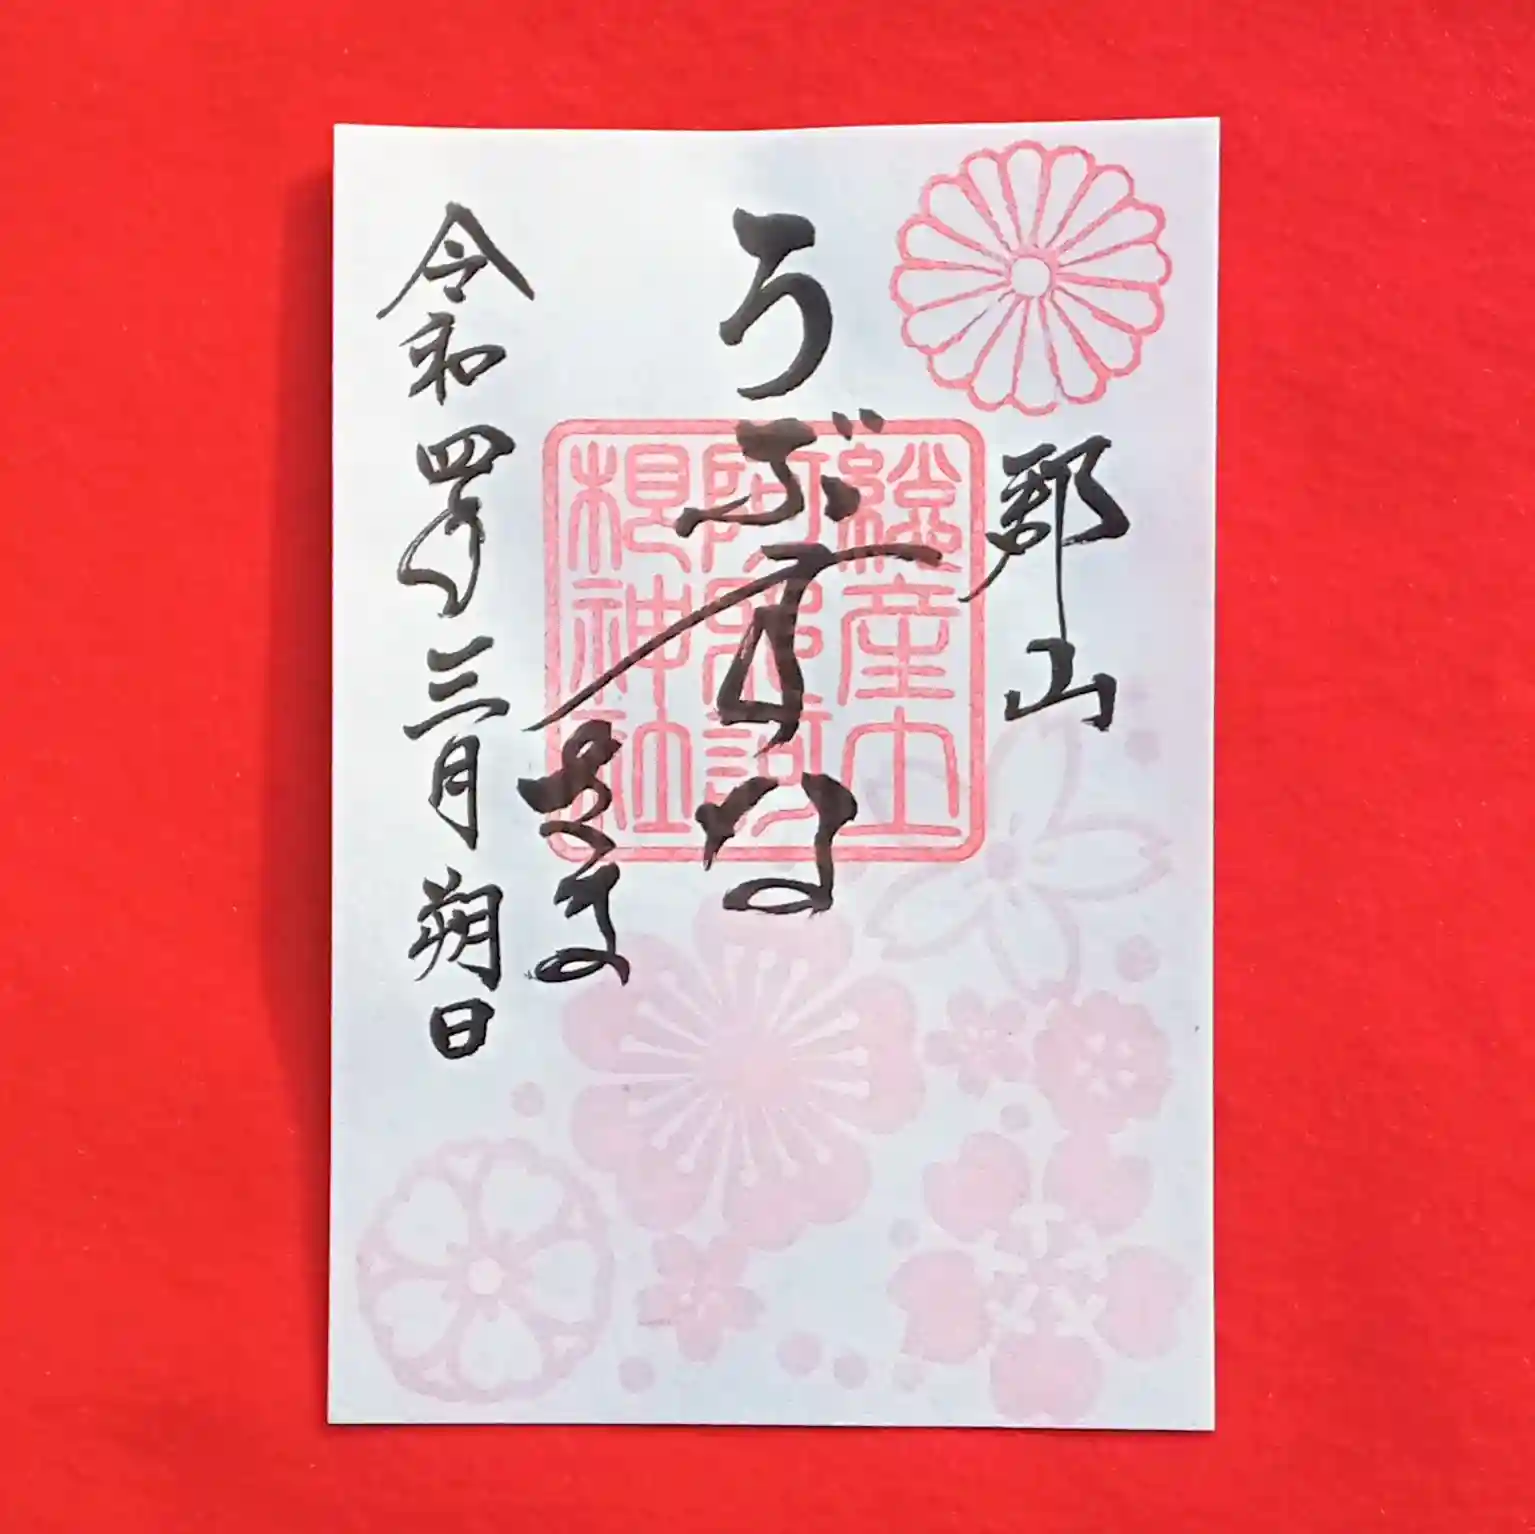 郡山
うぶすな
さま
令和四年三月朔日
総産土
阿邪訶
根神社